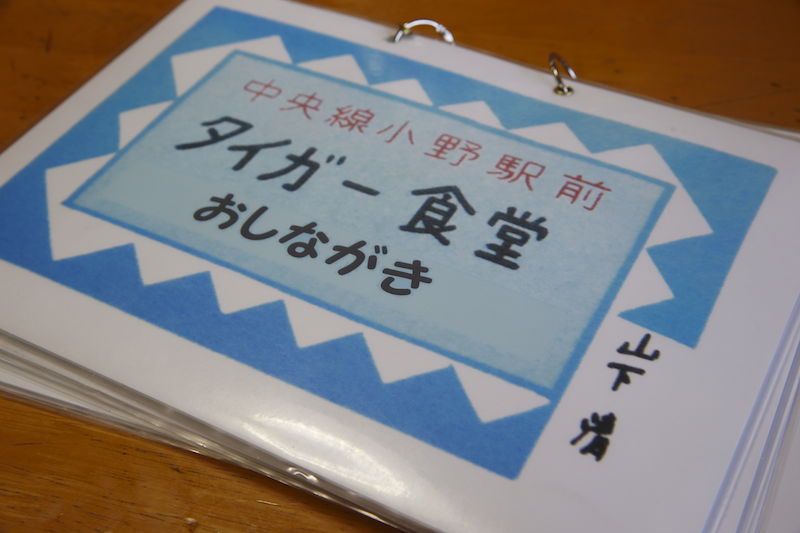 中央線小野駅前
タイガー食堂
おしながき
山下清